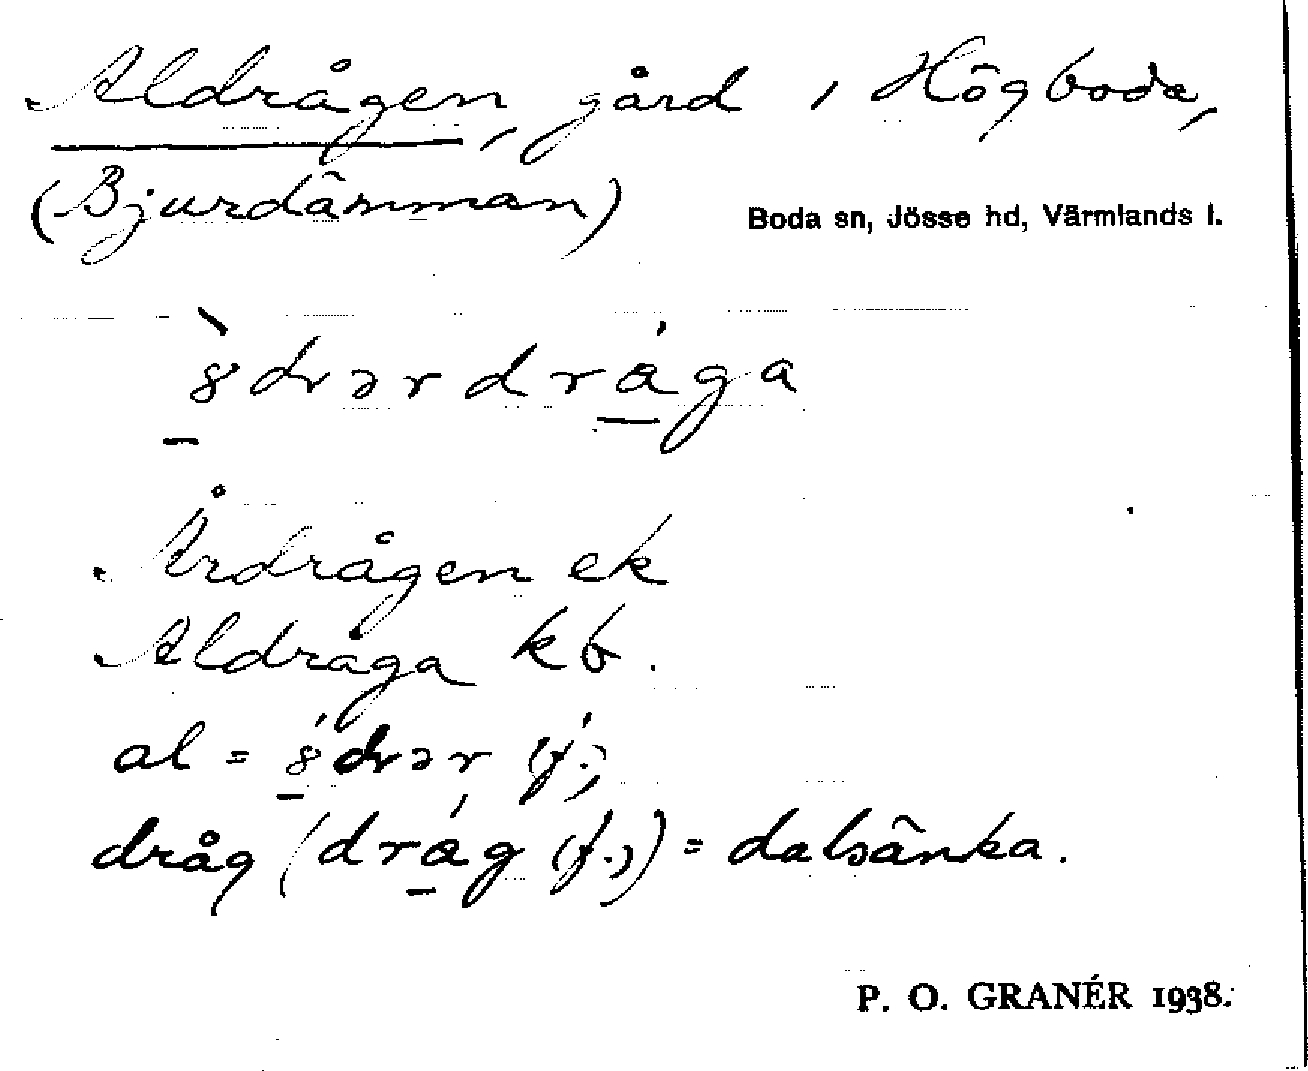 Aldrågen, gård i Högboda,
(Bjurdämman)
Boda sn, Jösse hd, Värmlands l.
Årdrågen ek
Aldråga kb.
al = (f.)
dråg (dråg (f.)) = dalsänka.
P. O. GRANÉR 1938.